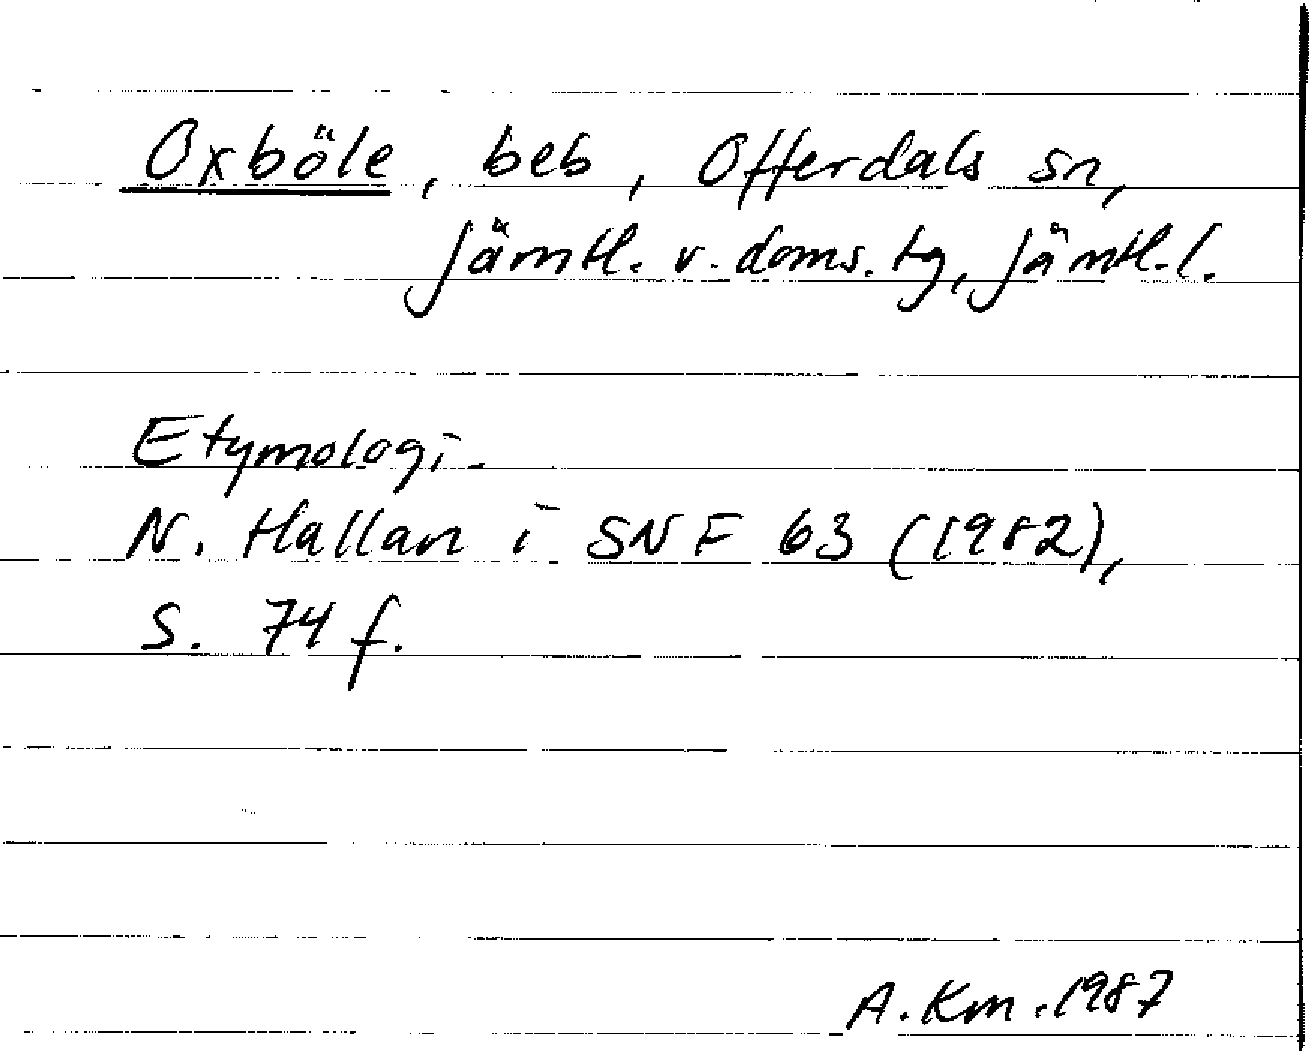 Oxböle, beb, Offerdals sn,
Jämtl. v. doms. tg, Jämtl. l.
Etymologi.
N. Hallan i SNF 63 (1982),
S. 74 f.
A. Km. 1987